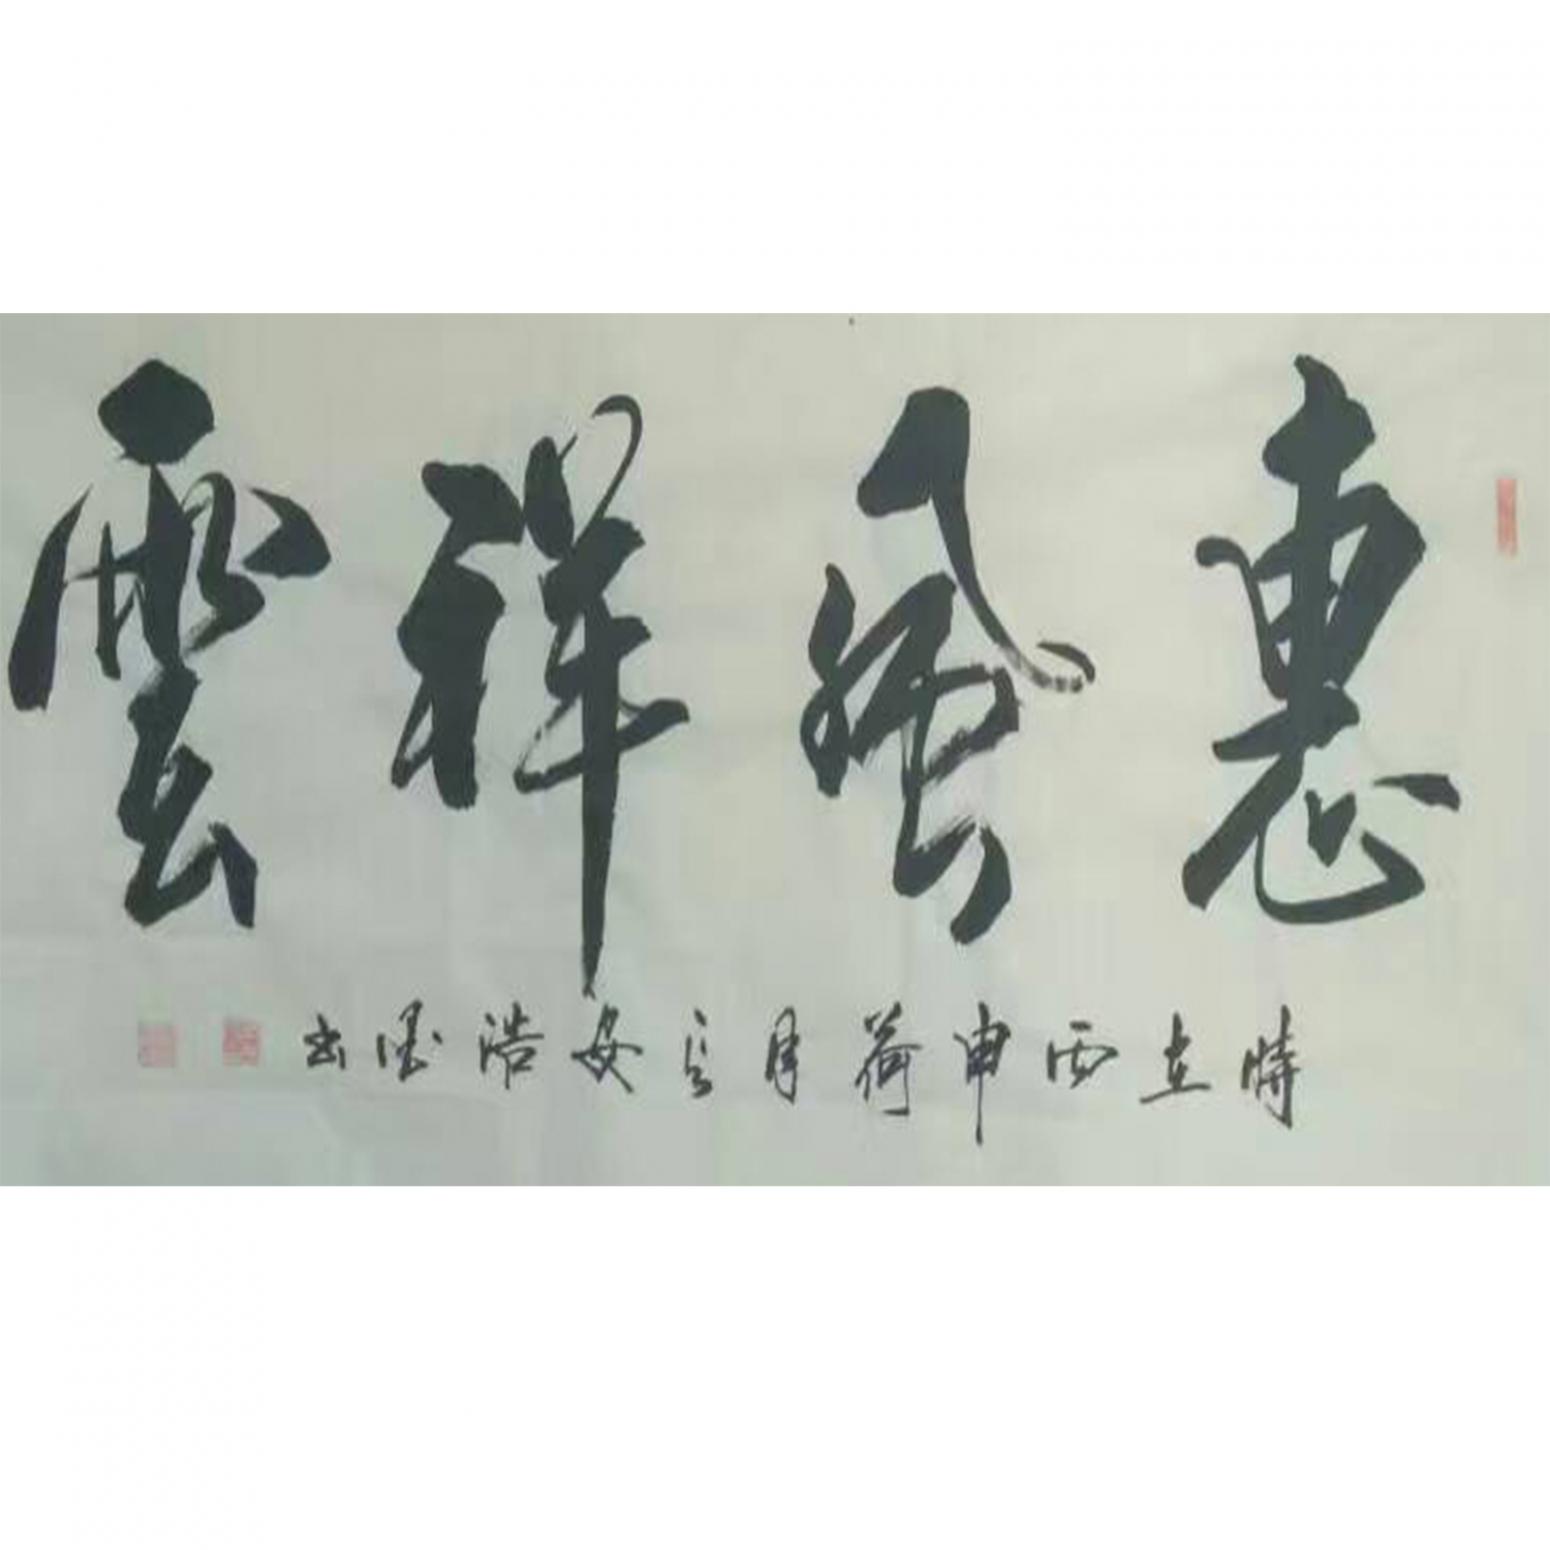 惠風祥雲
時在丙申荷月安浩墨書